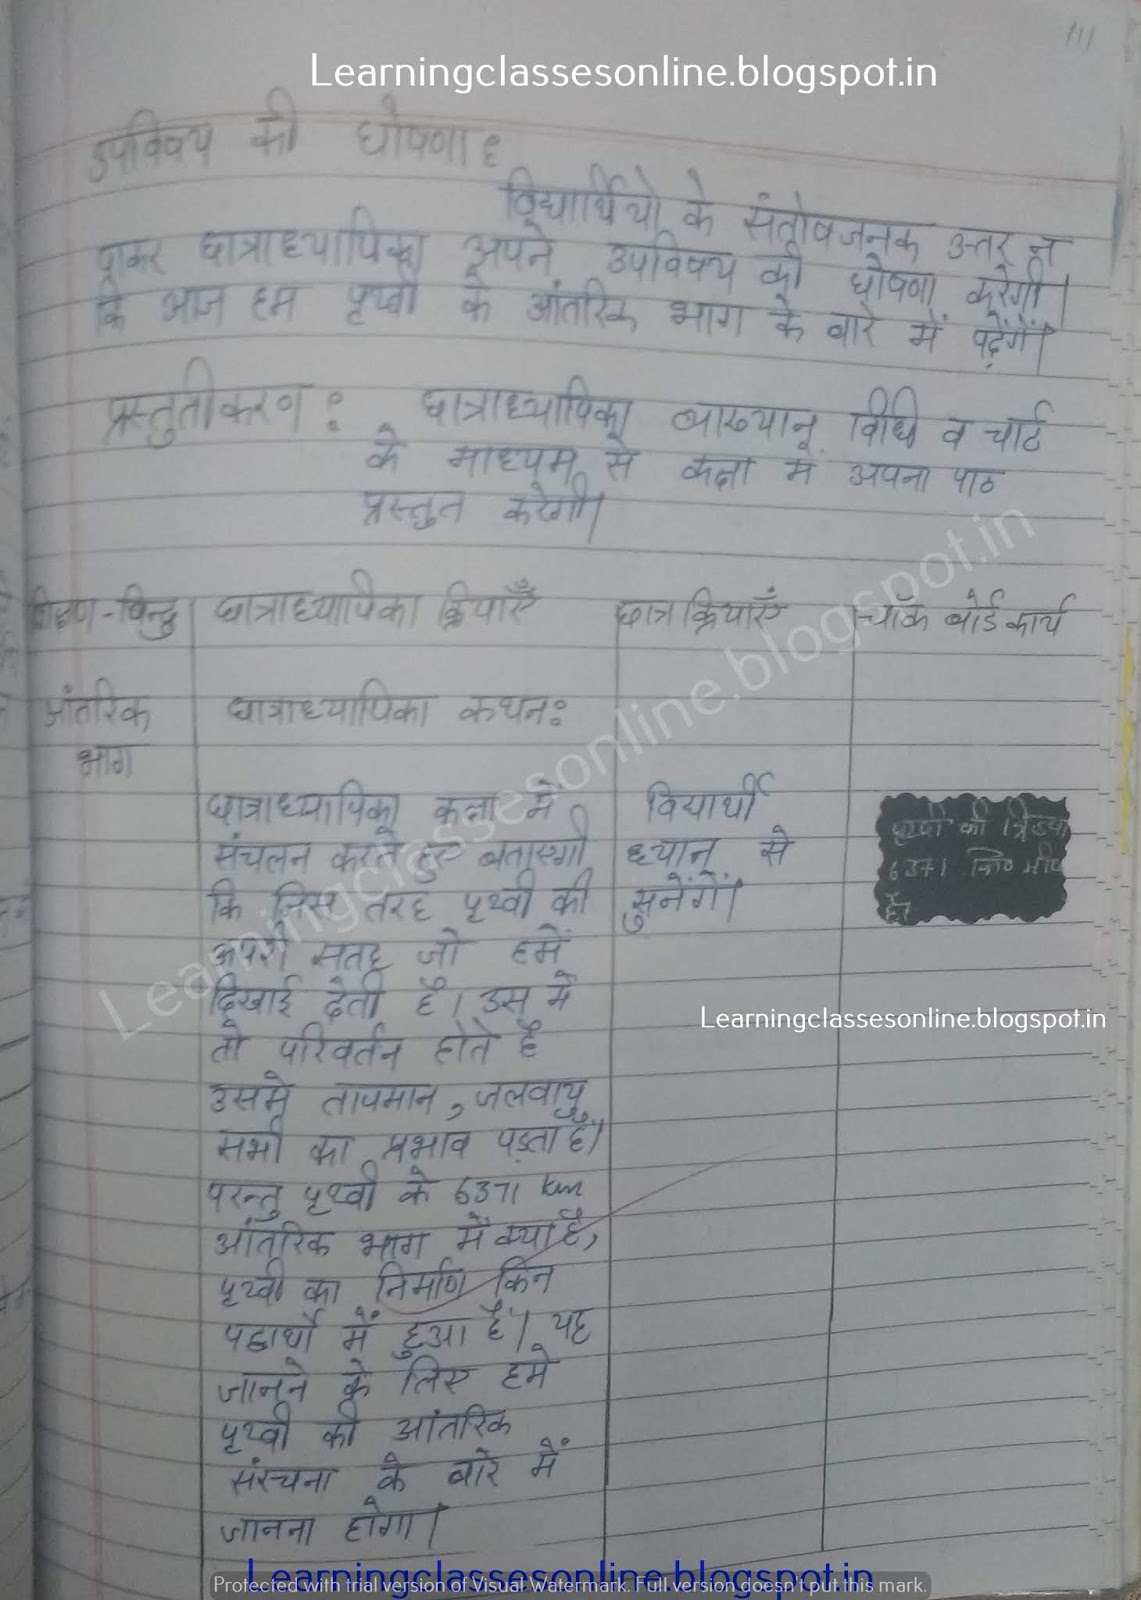 111
Learningclassesonline.blogspot.in
उपविषय की घोषणा :
विद्यार्थियो के संतोषजनक उत्तर न
पाकर छात्राध्यापिका अपने उपविषय की घोषणा करेगी।
कि आज हम पृथ्वी के आंतरिक भाग के बारे में पढ़ेगें।
प्रस्तुतीकरण : छात्राध्यापिका व्याख्यान विधि व चार्ट
के माध्यम से कक्षा में अपना पाठ
प्रस्तुत करेगी।
शिक्षण-बिन्दु छात्राध्यापिका क्रियाएँ छात्र क्रियाएं चॉक बोर्ड कार्य
आंतरिक छात्राध्यापिका कथन:
भाग
छात्राध्यापिका कक्षा मे विद्यार्थी पृथ्वी की त्रिज्या
संचलन करते हुए बताएगी ध्यान से 6371 कि० मी०
कि जिस तरह पृथ्वी की सुनेगें। है।
ऊपरी सतह जो हमें
दिखाई देती है। उस मे
Learningclassesonline.blogspot.in
तो परिवर्तन होते है
उसमे तापमान, जलवायु
सभी का प्रभाव पड़ता है।
परन्तु पृथ्वी के 6371 km
आंतरिक भाग में क्या है,
पृथ्वी का निर्माण किन
पदार्थो में हुआ है। यह
जानने के लिए हमे
पृथ्वी की आंतरिक
संरचना के बारे में
जानना होगा।
Learningclassesonline.blogspot.in
Learningclassesonline.blogspot.in
Protected with trial version of Visual Watermark. Full version doesn't put this mark.